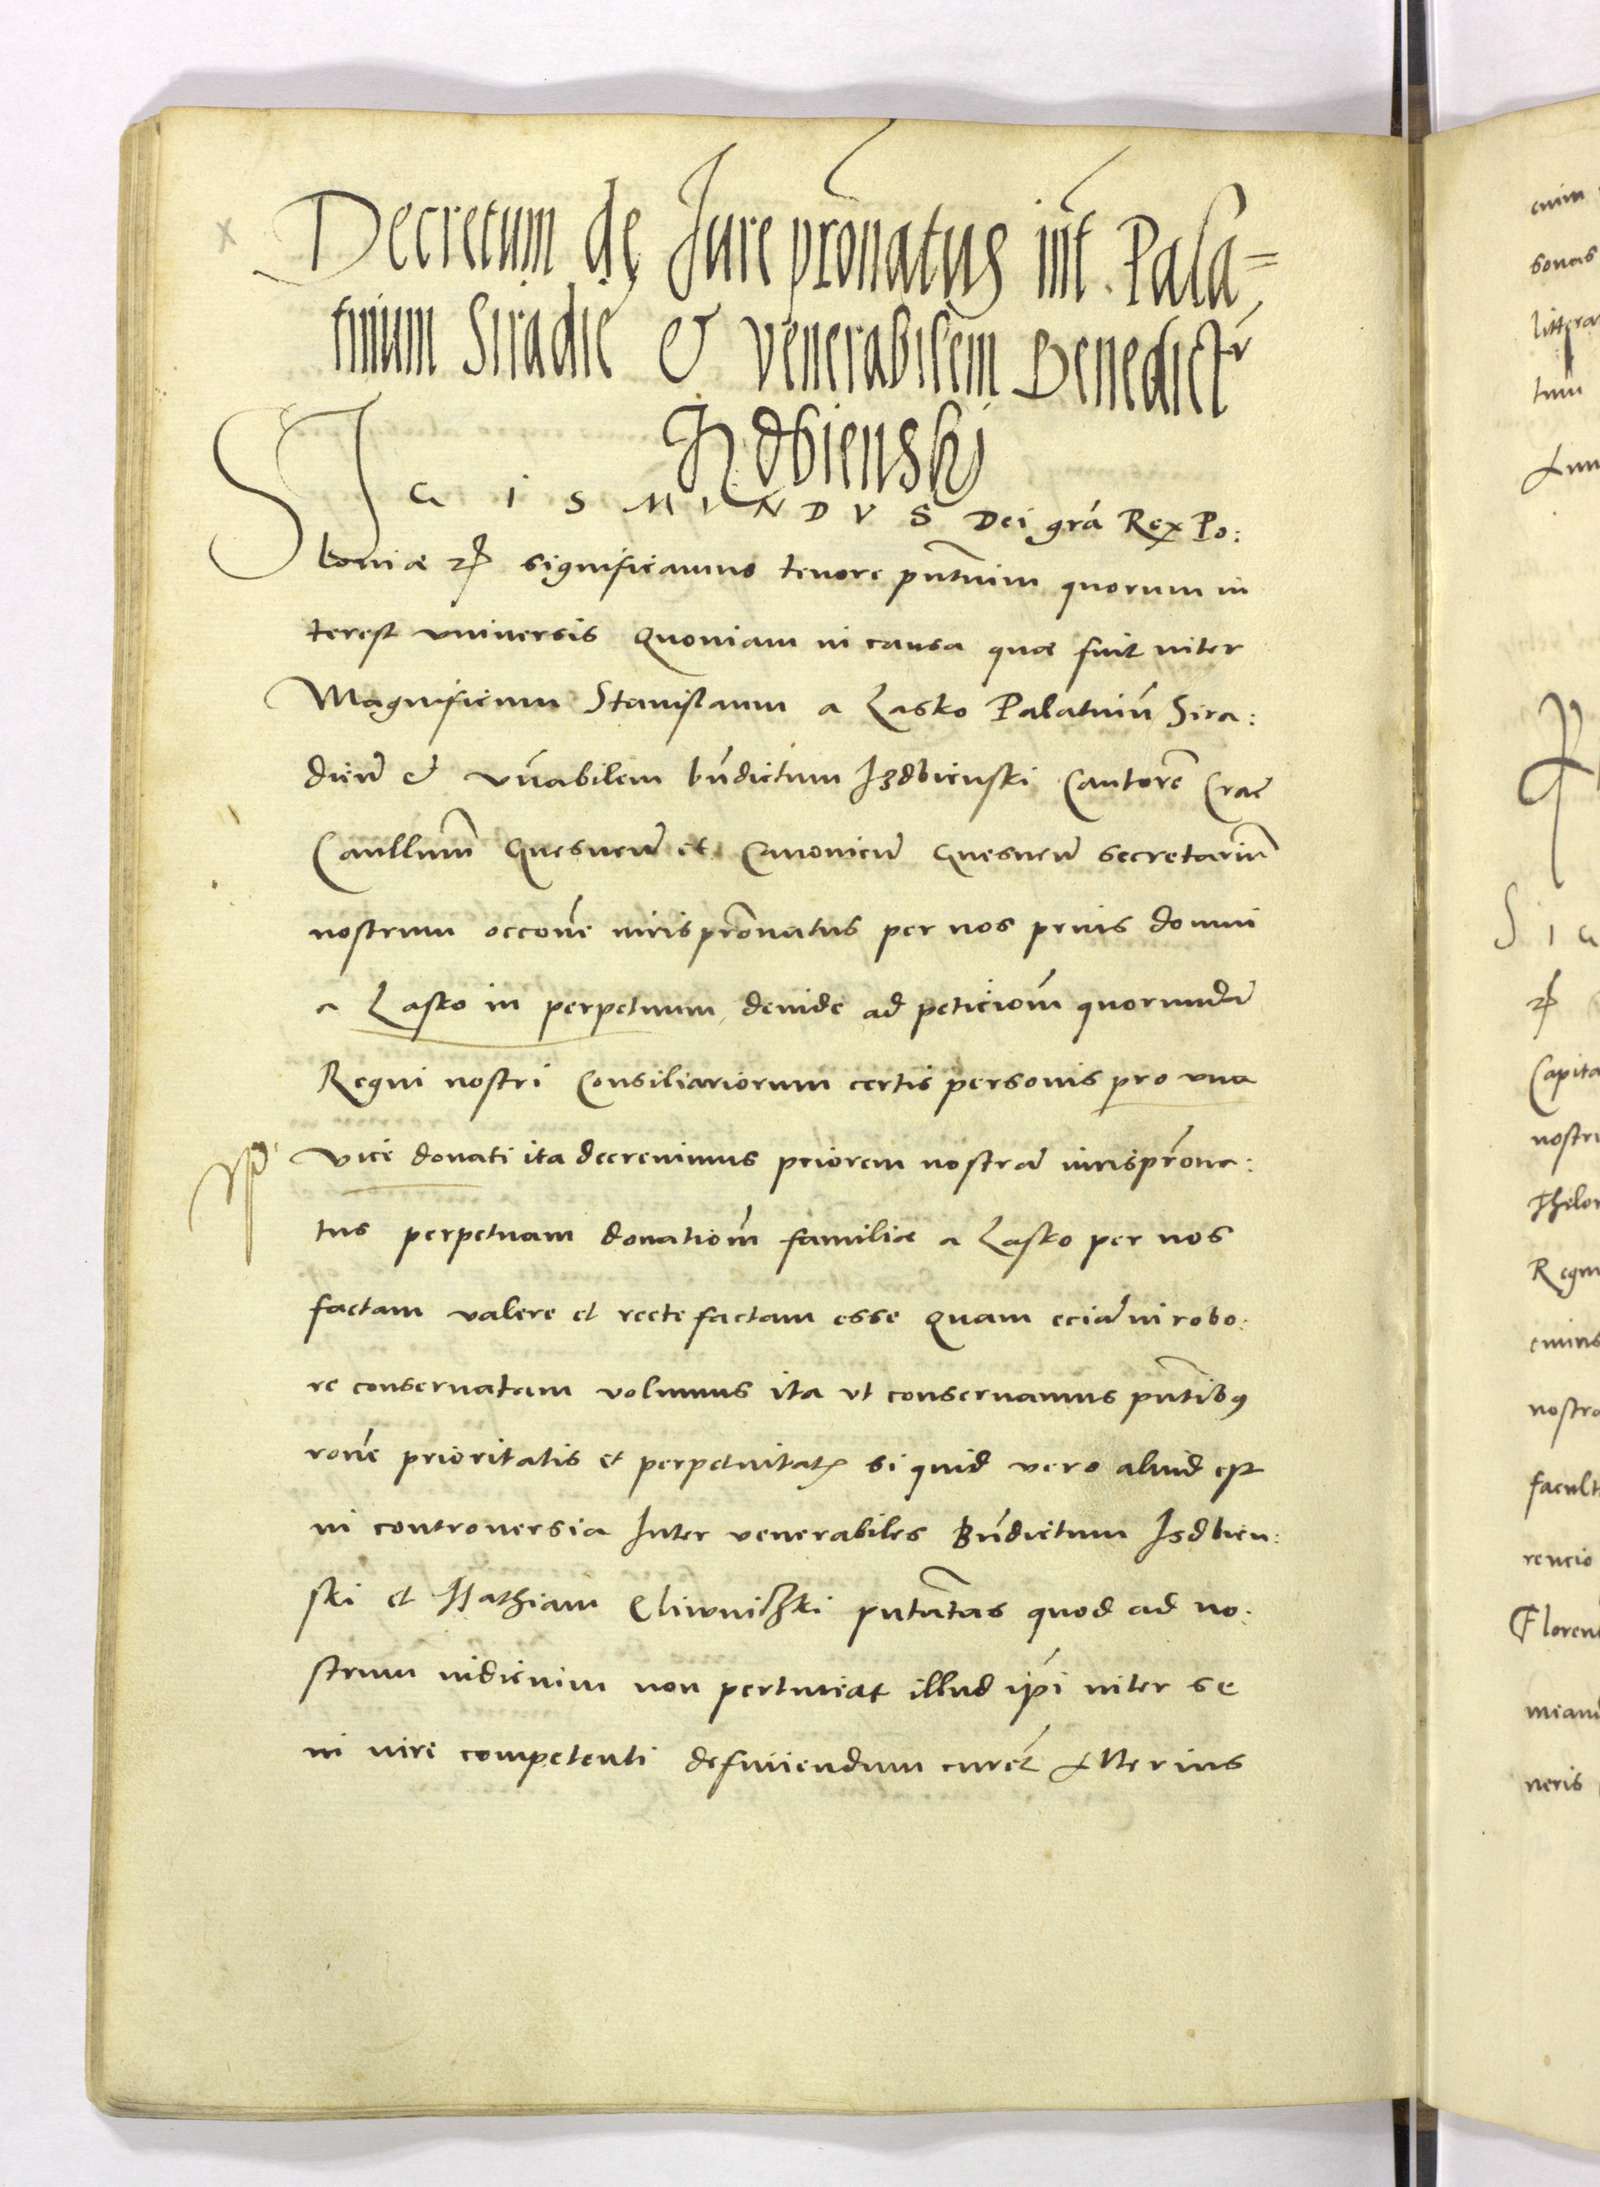 Decretum de Jure pr̃onatus int̃. Pala=
tinum Siradie & venerabilem Benedictũ
Izdbienski
SIGISMVNDVS Dei grã Rex Po:
loniæ significamus tenore pñtium quorum in
terest vniversis Quoniam in causa quæ fuit inter
Magnificum Stanislaum a Lasko Palatinũ Sira:
dieñ & vñabilem bñdictum Izdbienski Cantorẽ Crac̃
Cancellum̃ Gnesneñ et Canonicũ Gnesneñ secretariũ
nostrum occõne iuris pr̃onatus per nos prius domui
a Lasko in perpetuum deinde ad peticiõm quorundã
Regni nostri Consiliariorum certis personis pro vna
vice donati ita decrevimus priorem nostrã iuris pr̃ona:
tus perpetuam donatiõm familiæ a Lasko per nos
factam valere et recte factam esse Quam eciã in robo:
re conservatam volumus ita vt conservamus pñtibus
rõne prioritatis et perpetuitatis si quid vero aliud est
in controversia Inter venerabiles Bñdictum Isdbien:
ski et Mathiam pñtãtas quod ad no:
strum iudicium non pertineat illud ip̃i inter se
in iure competenti definiendum curẽt Alterius
enim
sonas
littera
tum
Si G
Capita
nostri
Thelon
Regni
nostra
facult
rencio
Floren
neris